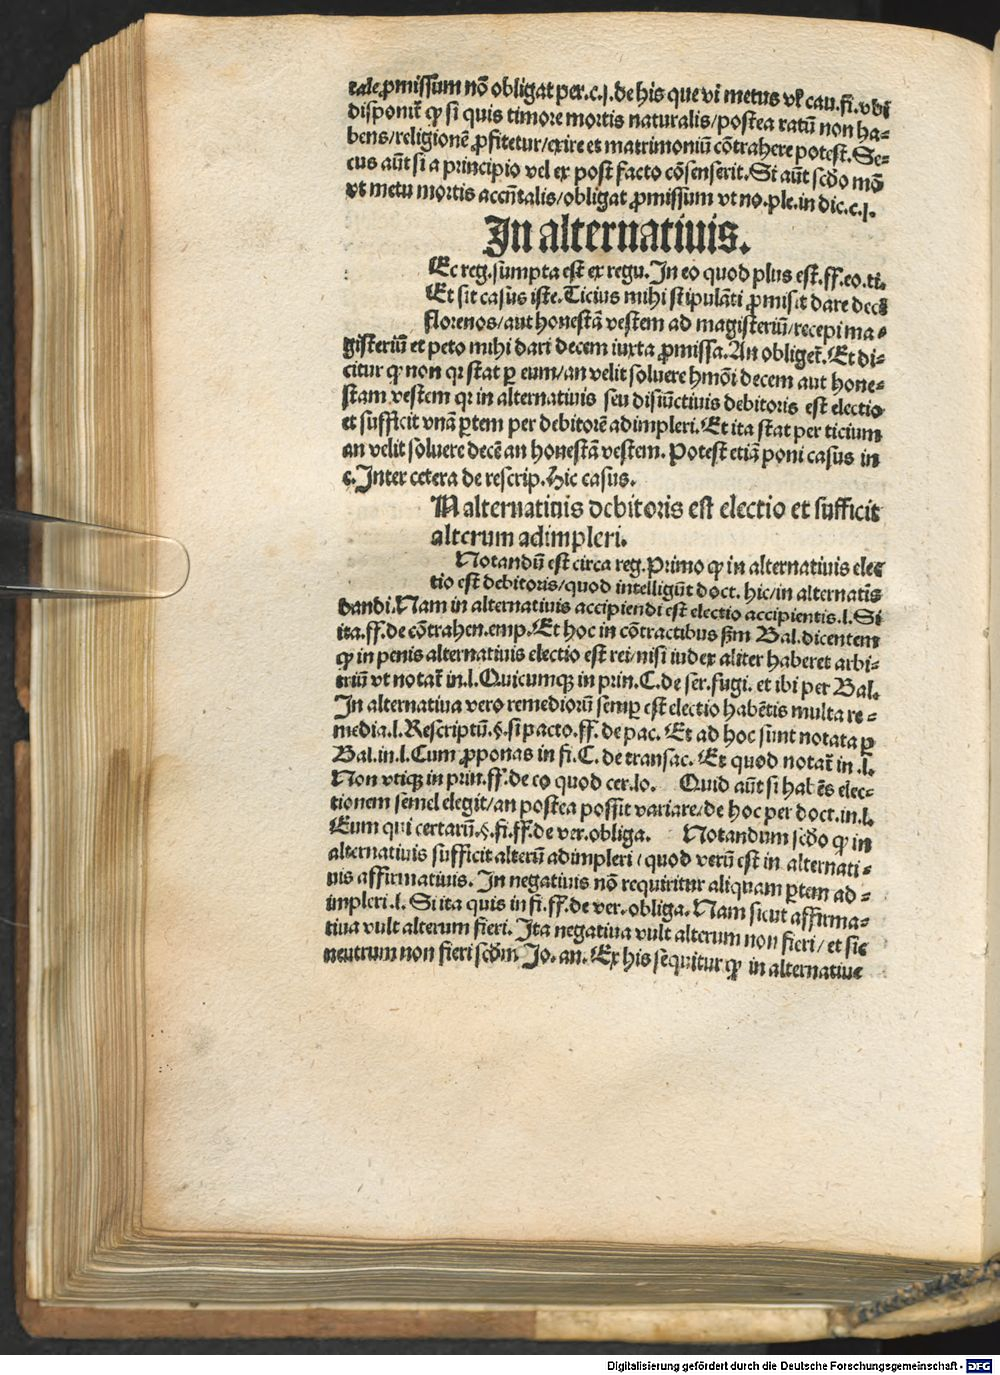 tale ꝓmissum nō obligat per.c.j.de his que vi metus vľ cau.fi.vbi
disponit᷑ ꝙ si quis timore mortis naturalis/postea ratū non ha-
bens/religionē ꝓfitetur/exire et matrimoniū cōtrahere potest.Se-
cus aūt si a principio vel ex post facto cōsenserit.Si aūt scďo mō
vt metu mortis accn̄talis/obligat ꝓmissum vt no.ple.in dic.c.j.
In alternatiuis.
Ec reg.sumpta est ex regu.In eo quod plus est.ff.eo.ti.
Et sit casus iste.Ticius mihi stipulāti ꝓmisit dare decē
florenos/aut honestā vestem ad magisteriū/recepi ma-
gisteriū et peto mihi dari decem iuxta ꝓmissa.An obliget᷑.Et di-
citur ꝙ non qr stat ꝑ eum/an velit soluere hmōi decem aut hone-
stam vestem qr in alternatiuis seu disiūctiuis debitoris est electio
et sufficit vnā ꝑtem per debitorē adimpleri.Et ita stat per ticium
an velit soluere decē an honestā vestem. Potest etiā poni casus in
c.Inter cetera de rescrip.Hic casus.
N alternatiuis debitoris est electio et sufficit
alterum adimpleri.
Notandū est circa reg.Primo ꝙ in alternatiuis elec
tio est debitoris/quod intelligūt doct. hic/in alternatis
dandi.Nam in alternatiuis accipiendi est electio accipientis.l.Si
ita.ff.de cōtrahen.emp.Et hoc in cōtractibus s̄m Bal.dicentem
ꝙ in penis alternatiuis electio est rei/nisi iudex aliter haberet arbi-
triū vt notat᷑ in.l.Quicumqꝫ in prin.C.de ser.fugi. et ibi per Bal.
In alternatiua vero remediorū semꝑ est electio habētis multa re-
media.l.Rescriptū.§.si pacto.ff. de pac. Et ad hoc sunt notata ꝑ
Bal.in.l.Cum ꝓponas in fi.C. de transac. Et quod notat᷑ in .l.
Non vtiqꝫ in prin.ff.de eo quod cer.lo. Quid aūt si habēs elec-
tionem semel elegit/an postea possit variare/de hoc per doct.in.l.
Eum qui certarū.§.fi.ff.de ver.obliga. Notandum scďo ꝙ in
alternatiuis sufficit alterū adimpleri/quod verū est in alternati-
uis affirmatiuis. In negatiuis nō requiritur aliquam ꝑtem ad-
impleri.l. Si ita quis in fi.ff.de ver.obliga.Nam sicut affirma-
tiua vult alterum fieri. Ita negatiua vult alterum non fieri/et sic
neutrum non fieri scďm Jo.an.Ex his sequitur ꝙ in alternatiue
Digitalisierung gefördert durch die Deutsche Forschungsgemeinschaft - DFG